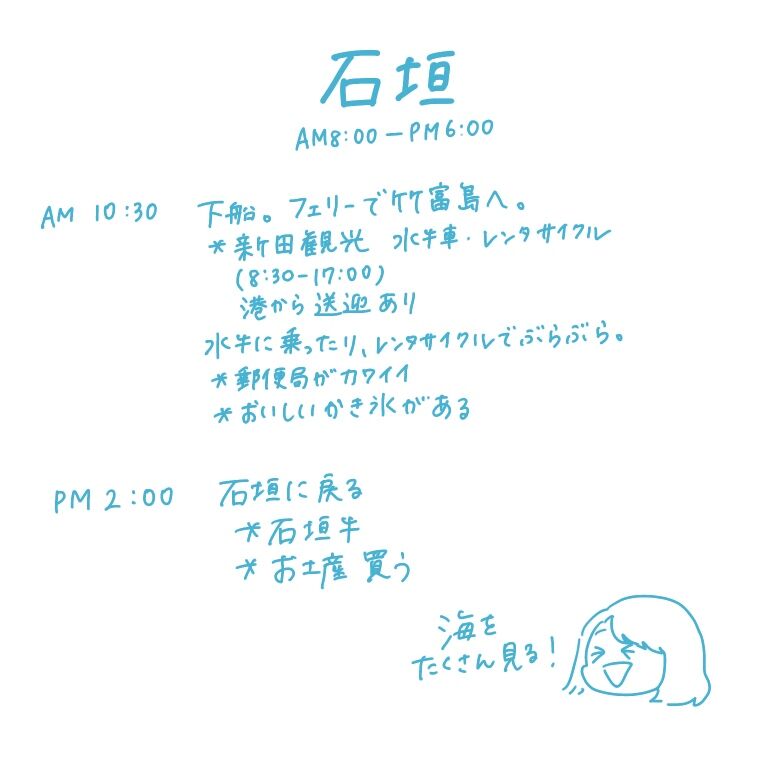 石垣
AM8:00－PM6:00
AM 10:30 下船。フェリーで竹富島へ。
*新田観光 水牛車・レンタサイクル
(8:30－17:00)
港から送迎あり
水牛に乗ったり、レンタサイクルでぶらぶら。
*郵便局がカワイイ
*おいしいかき氷がある
PM 2:00 石垣に戻る
*石垣牛
*お土産買う
海を
たくさん見る!